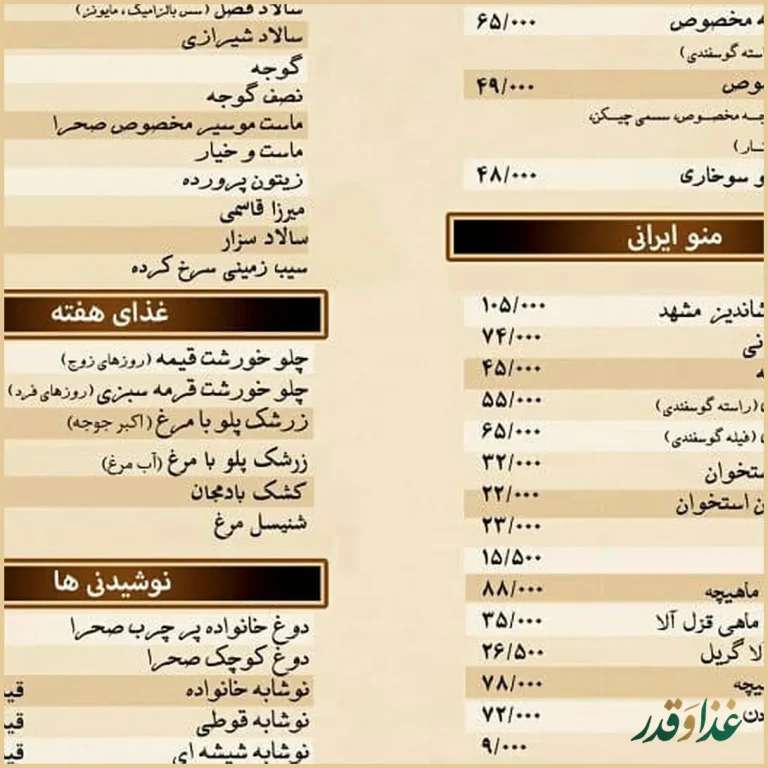 ه مخصوص ۶۵/۰۰۰
(راسته گوسفندی)
وص ۴۹/۰۰۰
جه مخصوص، سسمی چیکن،
ار)
و سوخاری ۴۸/۰۰۰
منو ایرانی
شاندیز مشهد ۱۰۵/۰۰۰
نی ۷۴/۰۰۰
ه ۴۵/۰۰۰
(راسته گوسفندی) ۵۵/۰۰۰
(فیله گوسفندی) ۶۵/۰۰۰
ستخوان ۳۲/۰۰۰
ن استخوان ۲۲/۰۰۰
۲۳/۰۰۰
۱۵/۵۰۰
ماهیچه ۸۸/۰۰۰
ماهی قزل آلا ۳۵/۰۰۰
لا گریل ۲۶/۵۰۰
یچه ۷۸/۰۰۰
دن ۷۲/۰۰۰
۹/۰۰۰
سالاد فصل (سس بالزامیک، مایونز)
سالاد شیرازی
گوجه
نصف گوجه
ماست موسیر مخصوص صحرا
ماست و خیار
زیتون پرورده
میرزا قاسمی
سالاد سزار
سیب زمینی سرخ کرده
غذای هفته
چلو خورشت قیمه (روزهای زوج)
چلو خورشت قرمه سبزی (روزهای فرد)
زرشک پلو با مرغ (اکبر جوجه)
زرشک پلو با مرغ (آب مرغ)
کشک بادمجان
شنیسل مرغ
نوشیدنی ها
دوغ خانواده پر چرب صحرا
دوغ کوچک صحرا
نوشابه خانواده قی
نوشابه قوطی قی
نوشابه شیشه ای قی
غذا و قدر